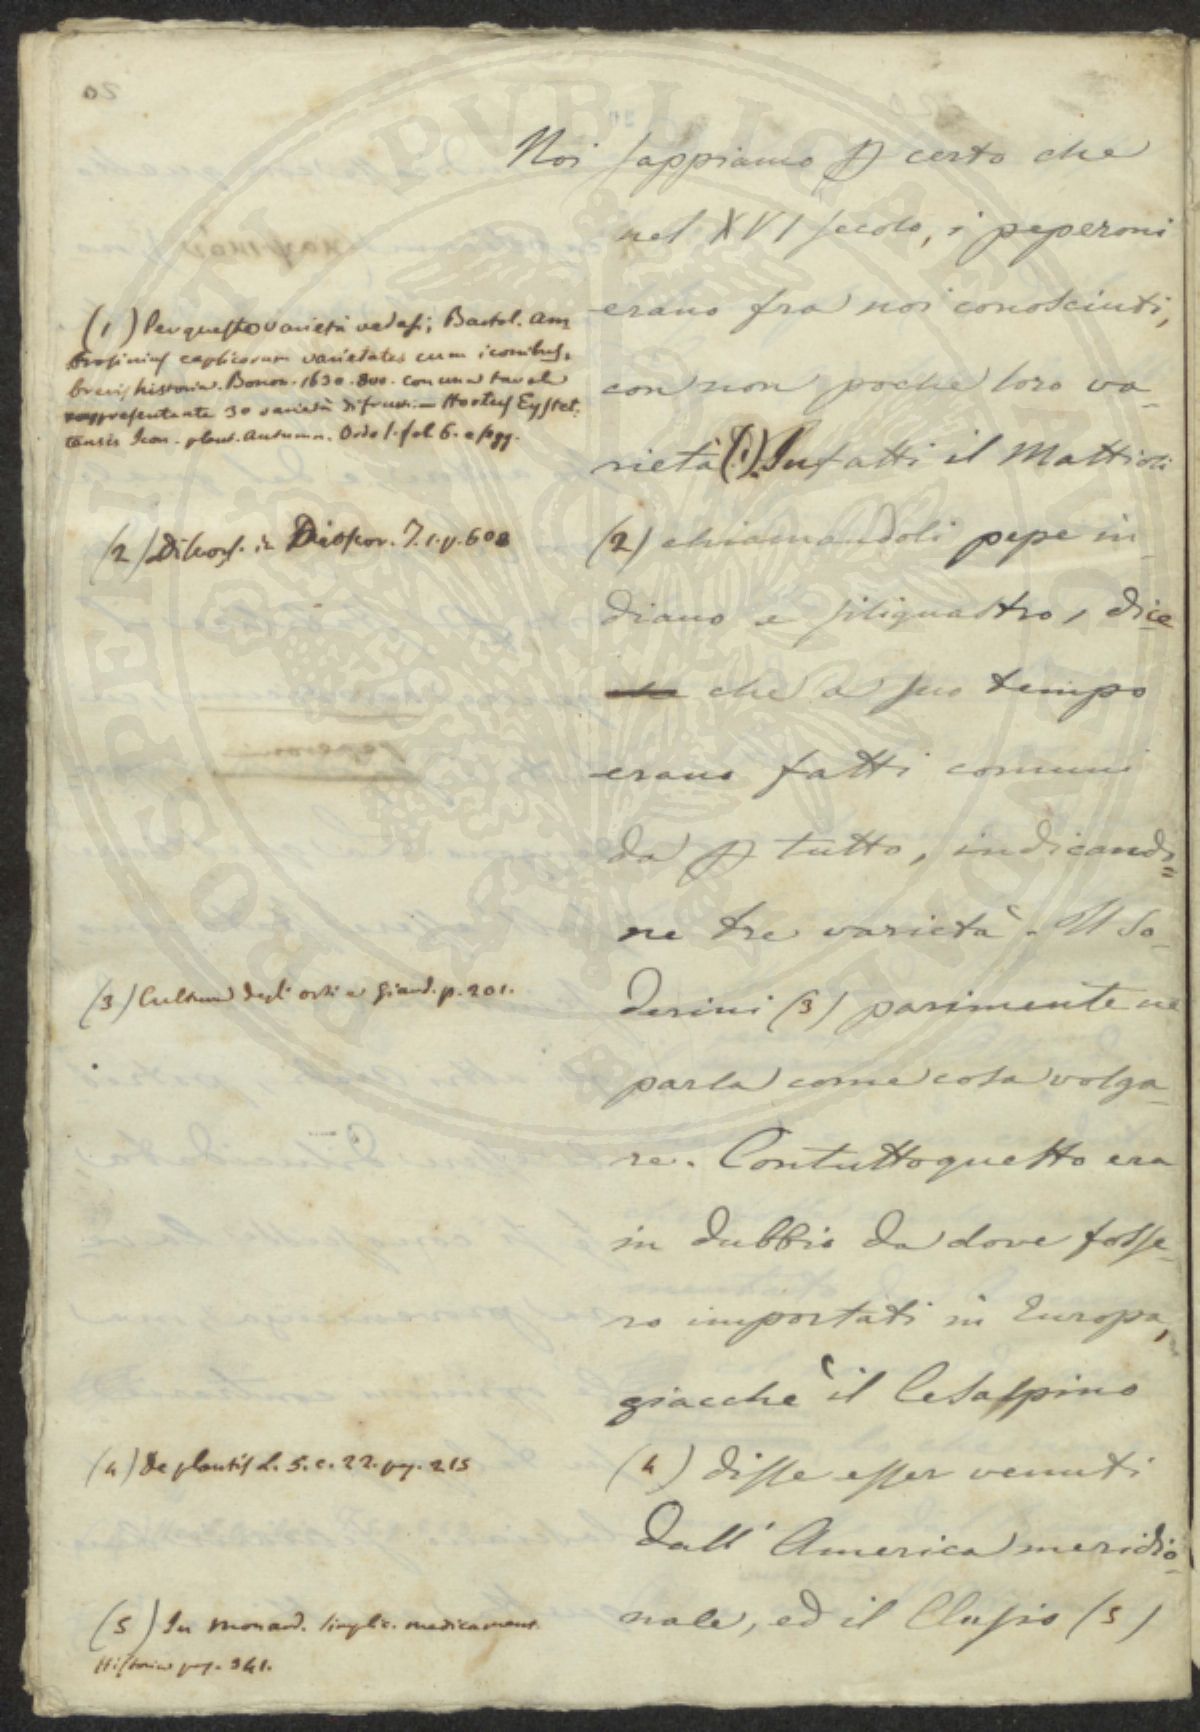 Noi sappiamo p certo che
nel XVI secolo, i peperoni
erano fra noi conosciuti,
con non poche loro va-
rietà (1). Infatti il Mattioli
(2) chiamandoli pepe in-
diano e siliquastro, dice
che a suo tempo
erano fatti comuni
da p tutto, indicando=
ne tre varietà. Il So-
derini (3) parimente ne
parla come cosa volga-
re. Contuttoquesto era
in dubbio da dove fosse-
ro importati in Europa,
giacchè il Cesalpino
(4) disse esser venuti
dall' America meridio-
nale, ed il Clusio (5)
(1) Per queste varietà vedasi; Bartol. Am
brosinius capsicorum varietates cum iconibus,
brevis historia. Bonon. 1630. 8vo. con una tavola
rappresentante 30 varietà di frutti. — Hortus Eystet
tensis Icon. plant. Autumn. Ordo 1. fol. 6. e segg.
(2) Discors. in Dioscor. T. 1. p. 608
(3) Cultura degli orti e Giard. p. 201.
(4) De plantis L. 5. c. 22. pag. 215
(5) In Monard. simplic. medicament.
Historia pag. 341.
PROSPERITATI PVBLICAE AVGENDAE